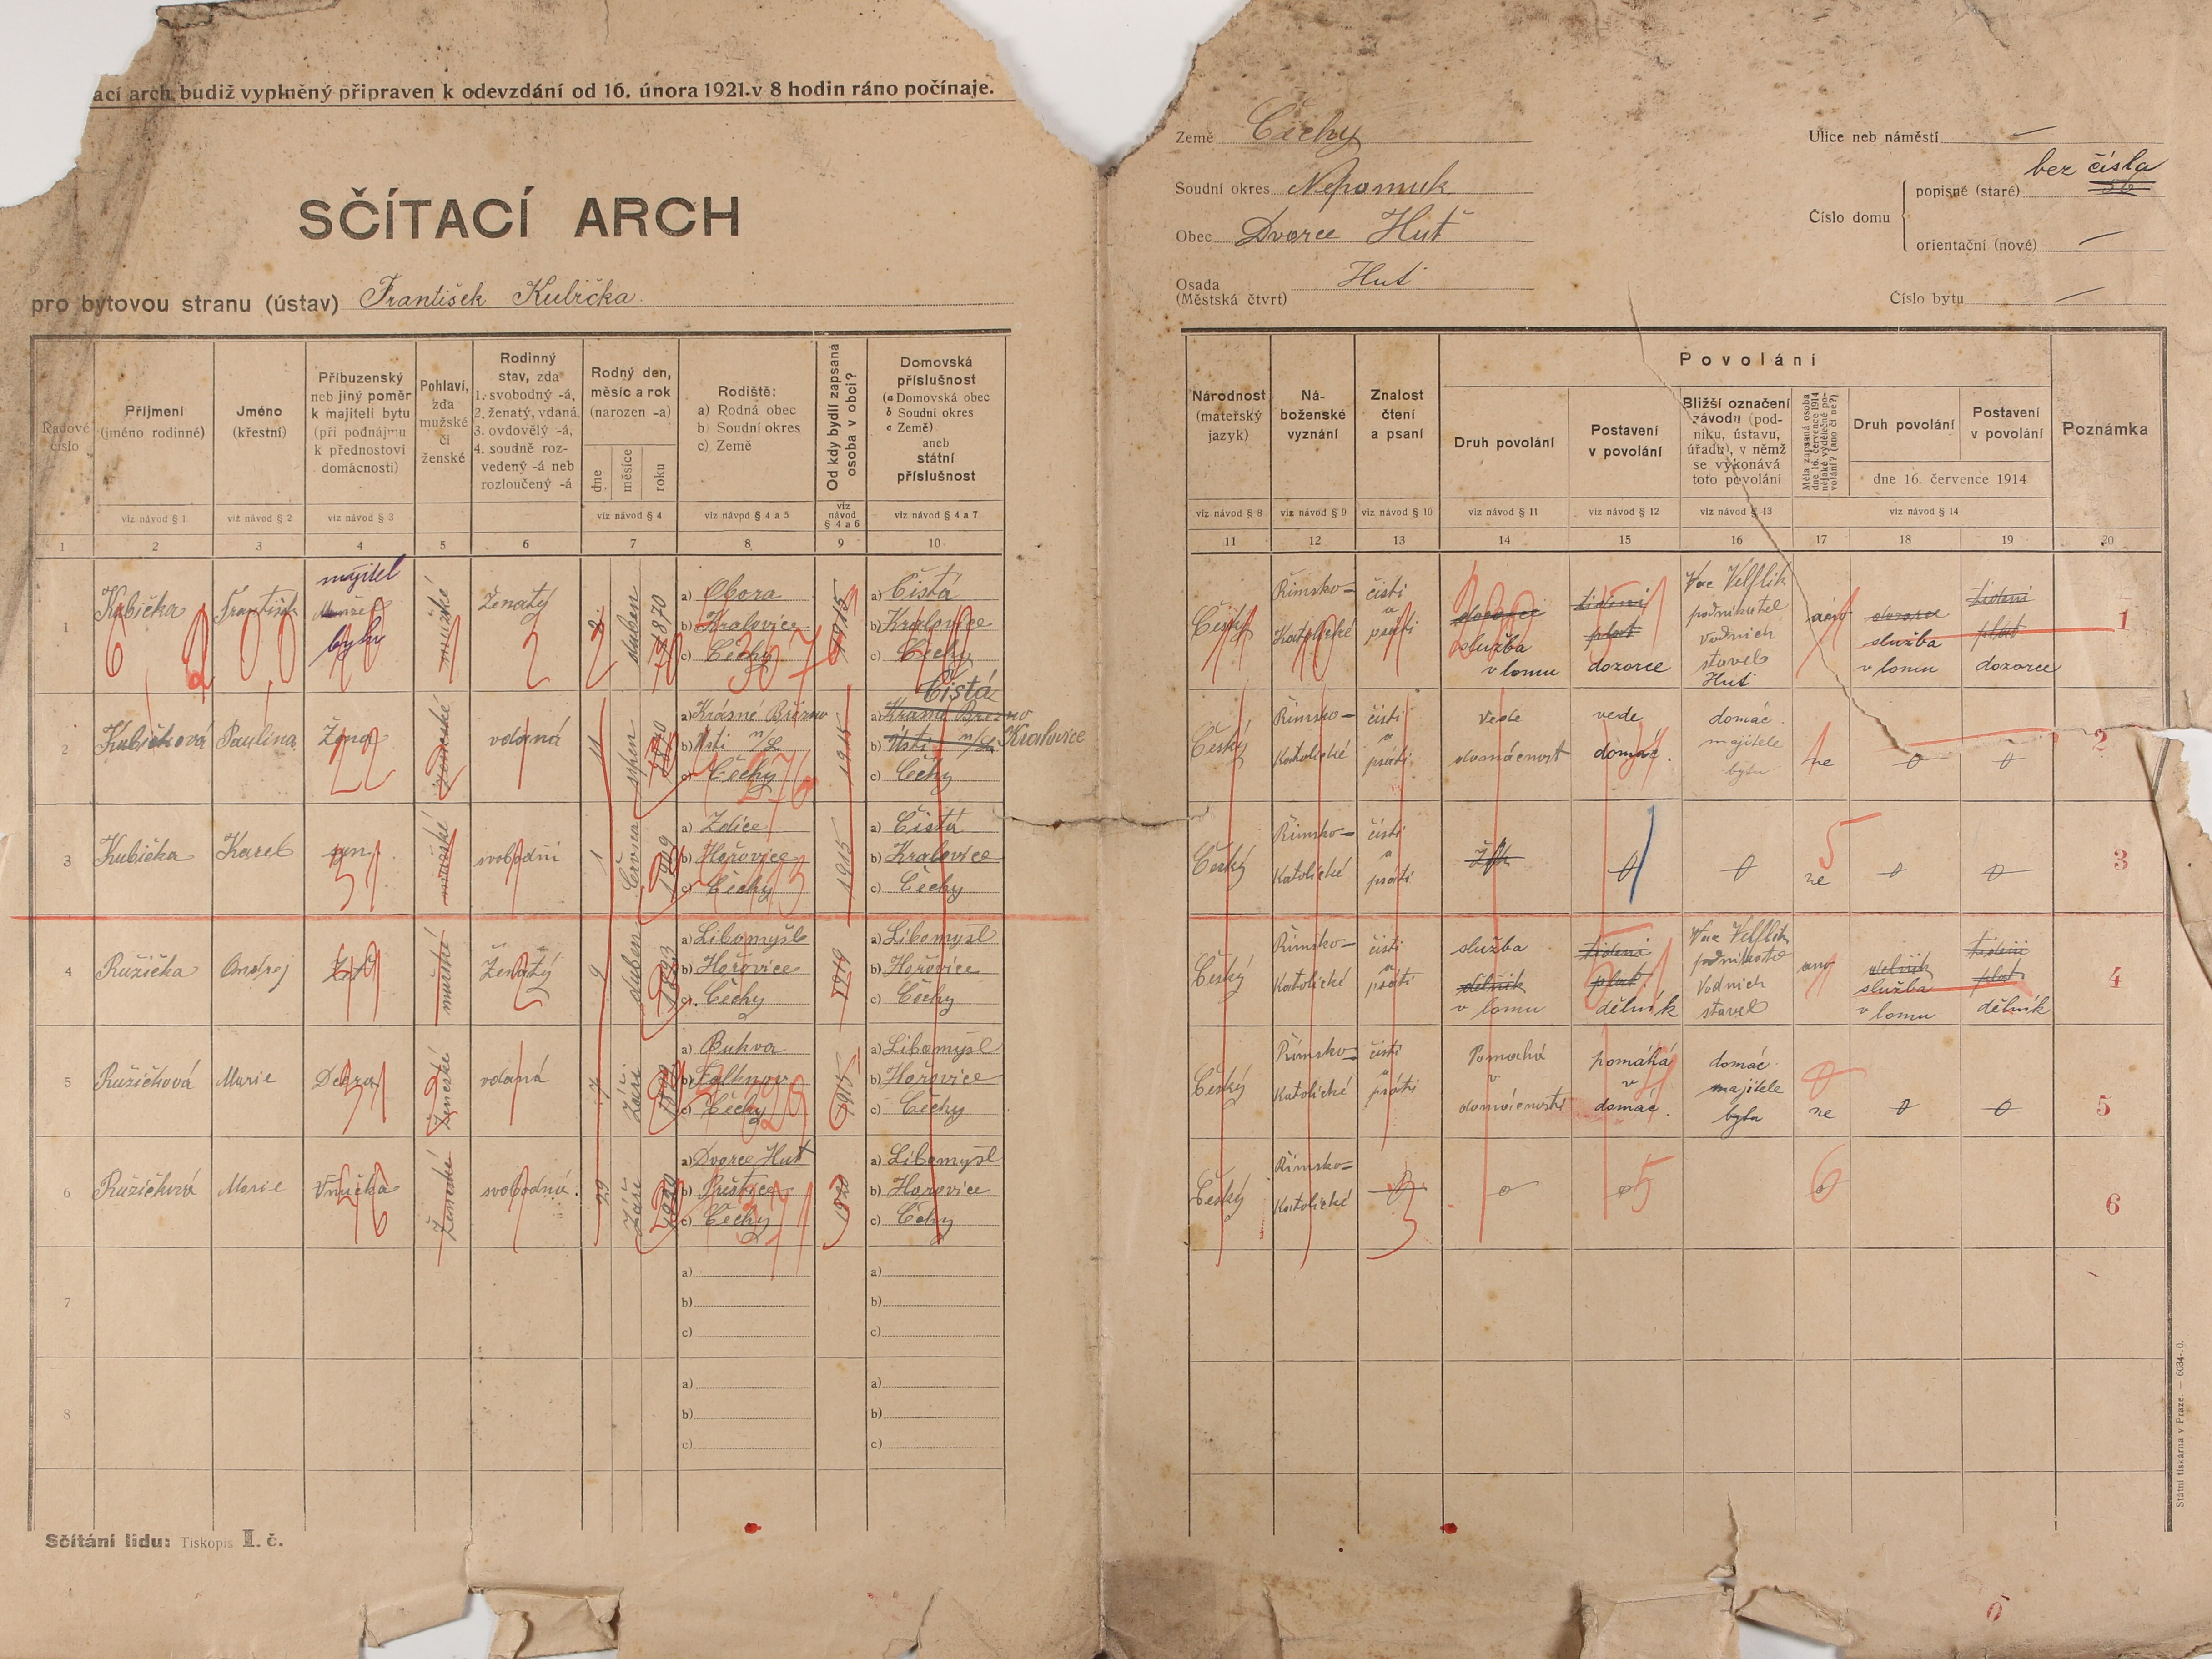 ací arch budiž vyplněný připraven k odevzdání od 16. února 1921 v 8 hodin ráno počínaje.
SČÍTACÍ ARCH
pro bytovou stranu (ústav) František Kubička
Země Čechy
Soudní okres Nepomuk
Obec Dvorce Huť
Osada (Městská čtvrt) Huť
Ulice neb náměstí —
bez čísla
Číslo domu
popisné (staré) 56
orientační (nové) —
Číslo bytu —
Řadové číslo
Příjmení (jméno rodinné)
Jméno (křestní)
Příbuzenský neb jiný poměr k majiteli bytu (při podnájmu k přednostovi domácnosti)
Pohlaví, zda mužské či ženské
Rodinný stav, zda 1. svobodný -á, 2. ženatý, vdaná 3. ovdovělý -á, 4. soudně rozvedený -á neb rozloučený -á
Rodný den, měsíc a rok (narozen -a)
dne měsíce roku
Rodiště: a) Rodná obec b) Soudní okres c) Země
Od kdy bydlí zapsaná osoba v obci?
Domovská příslušnost (a Domovská obec b Soudní okres c Země) aneb státní příslušnost
viz návod § 1 viz návod § 2 viz návod § 3 viz návod § 4 viz návod § 4 a 5 viz návod § 4 a 6 viz návod § 4 a 7
1 2 3 4 5 6 7 8 9 10
Národnost (mateřský jazyk)
Náboženské vyznání
Znalost čtení a psaní
Povolání
Druh povolání
Postavení v povolání
Bližší označení závodu (podniku, ústavu, úřadu), v němž se vykonává toto povolání
Měla zapsaná osoba dne 16. července 1914 nějaké výdělečné povolání? (ano či ne?)
Druh povolání
Postavení v povolání
dne 16. července 1914
Poznámka
viz návod § 8 viz návod § 9 viz návod § 10 viz návod § 11 viz návod § 12 viz návod § 13 viz návod § 14
11 12 13 14 15 16 17 18 19 20
1 Kubička František majitel bytu mužské Ženatý 2. duben 1870
a) Obora
b) Kralovice
c) Čechy
1915
a) Čistá
b) Kralovice
c) Čechy
Český Římsko= Katolické čísti a psáti dozorce služba v lomu týdení plat dozorce Velflík podnikatel vodních staveb Huť ano dozorce služba v lomu týdení plat dozorce 1
2 Kubičková Paulina Žena ženské vdaná 11 srpen 1870
a) Krásné Březno
b) Ústí n/L
c) Čechy
1915
Čistá
a) Krásné Březno
b) Ústí n/L Kralovice
c) Čechy
Český Římsko= Katolické čísti a psáti vede domácnost vede domác. domác. majitele bytu ne 0 0 2
3 Kubička Karel syn mužské svobodní 1 Června 1909
a) Zdice
b) Hořovice
c) Čechy
1915
a) Čistá
b) Kralovice
c) Čechy
Český Římsko= Katolické čísti a psáti 0 0 5 ne 0 0 3
4 Růžička Ondrej Zeť mužské Ženatý 9 duben 1893
a) Libomyšl
b) Hořovice
c) Čechy
1919
a) Libomyšl
b) Hořovice
c) Čechy
Český Římsko= Katolické čísti a psáti služba dělník v lomu týdení plat dělník Velflík podnikatel Vodních staveb ano dělník služba v lomu týdení plat dělník 4
5 Růžičková Marie Dcera ženské vdaná 7 Září
a) Bukva
b) Falknov
c) Čechy
1915
a) Libomyšl
b) Hořovice
c) Čechy
Český Římsko= Katolické čísti a psáti Pomahá v domácnosti pomáhá v domác. domác. majitele bytu ne 0 0 5
6 Růžičková Marie Vnučka Ženské svobodná. 29 Září 1920
a) Dvorce Huť
b)
c) Čechy
1920
a) Libomyšl
b) Hořovice
c) Čechy
Český Římsko= Katolické 0 0 0 5 6 6
7
a)
b)
c)
a)
b)
c)
8
a)
b)
c)
a)
b)
c)
Sčítání lidu: Tiskopis I. č.
Státní tiskárna v Praze. — 6034-0.